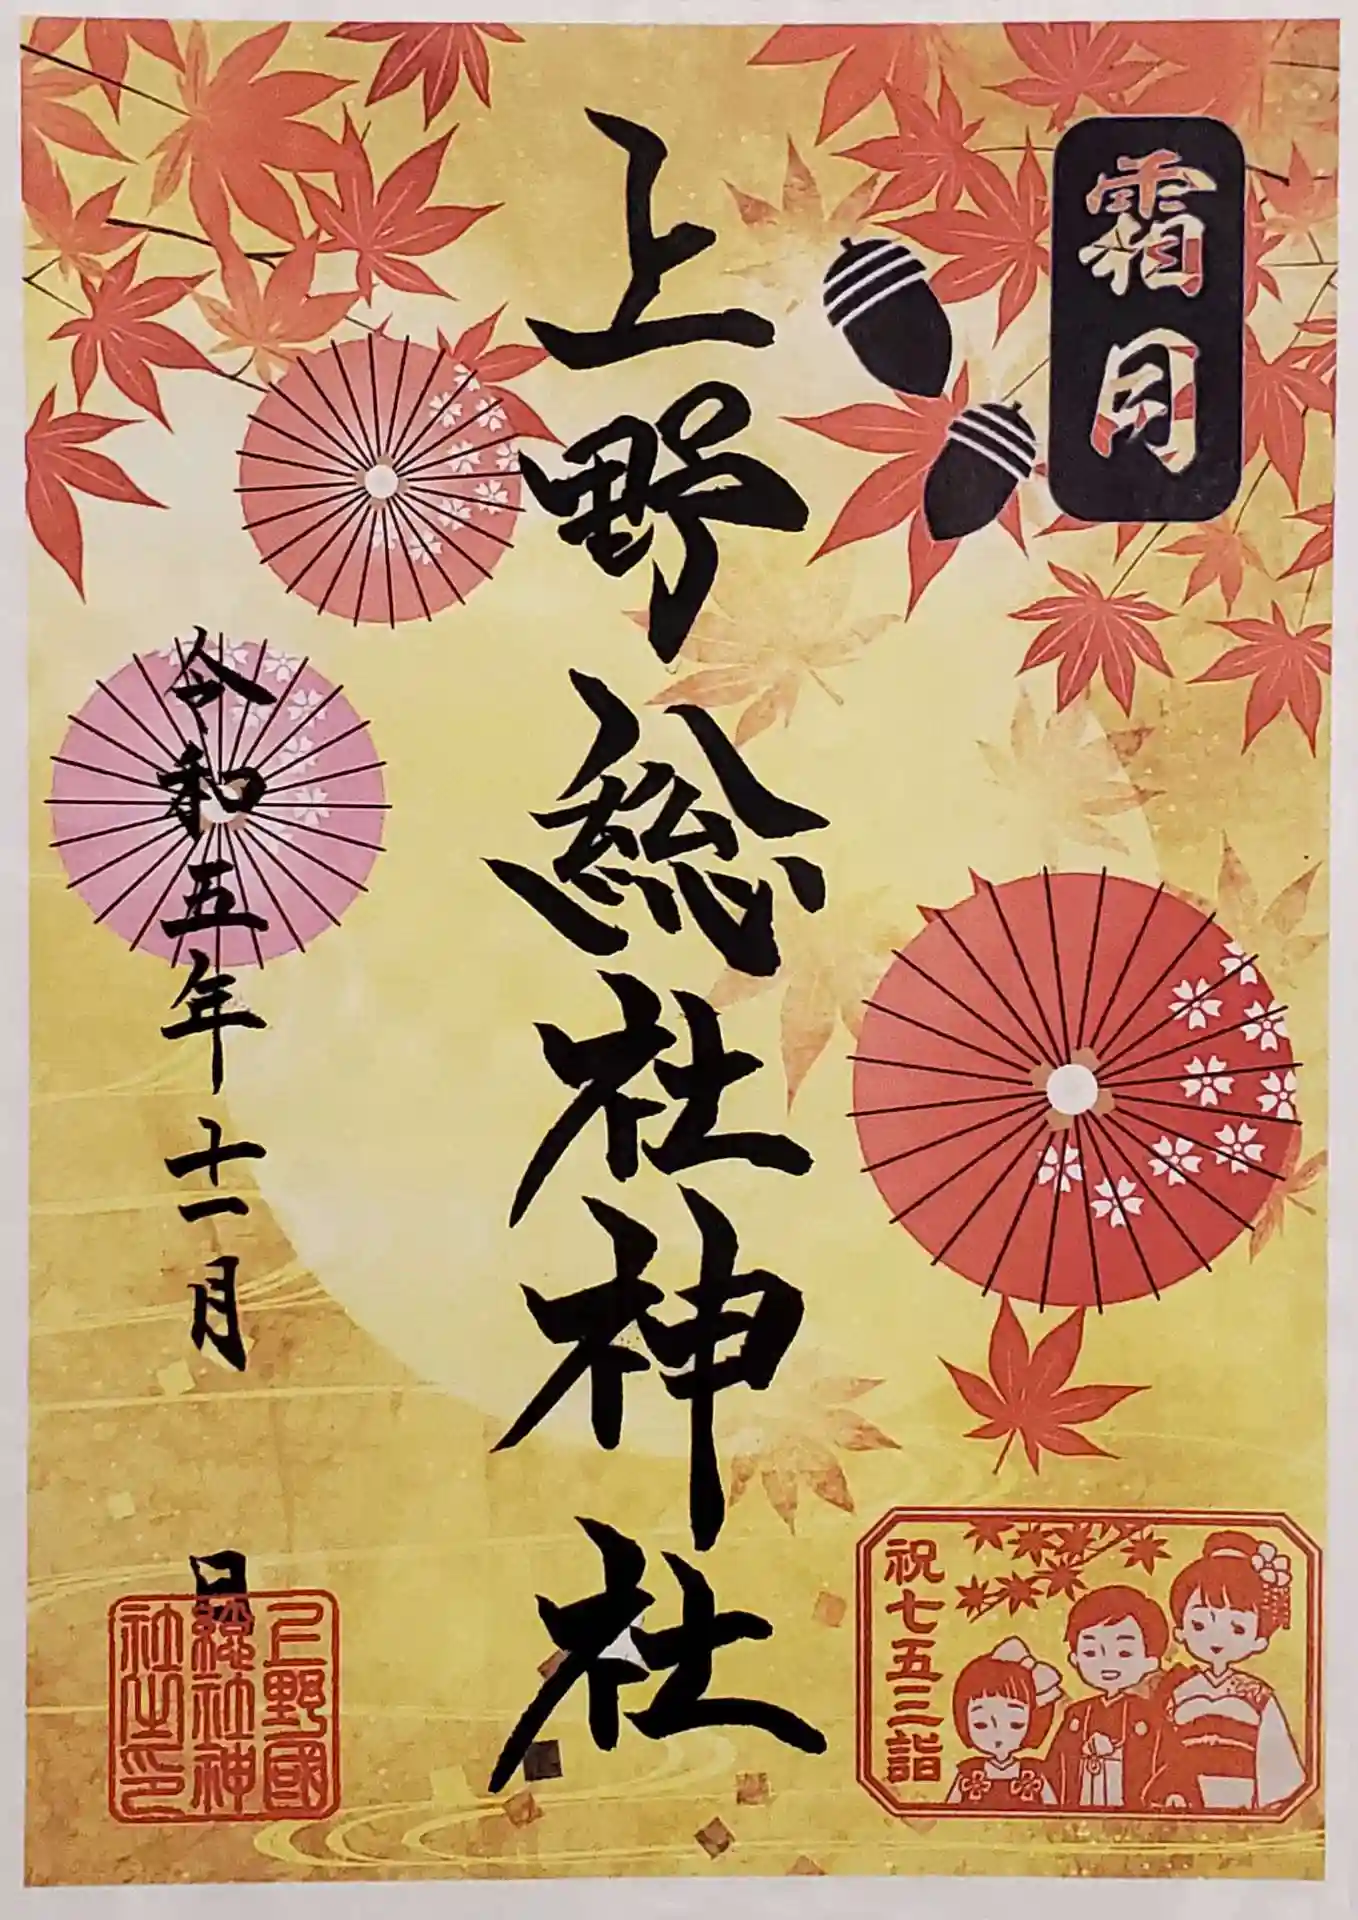 霜月
上野総社神社
令和五年十一月
日
上野國
総社神
社之印
祝七五三詣